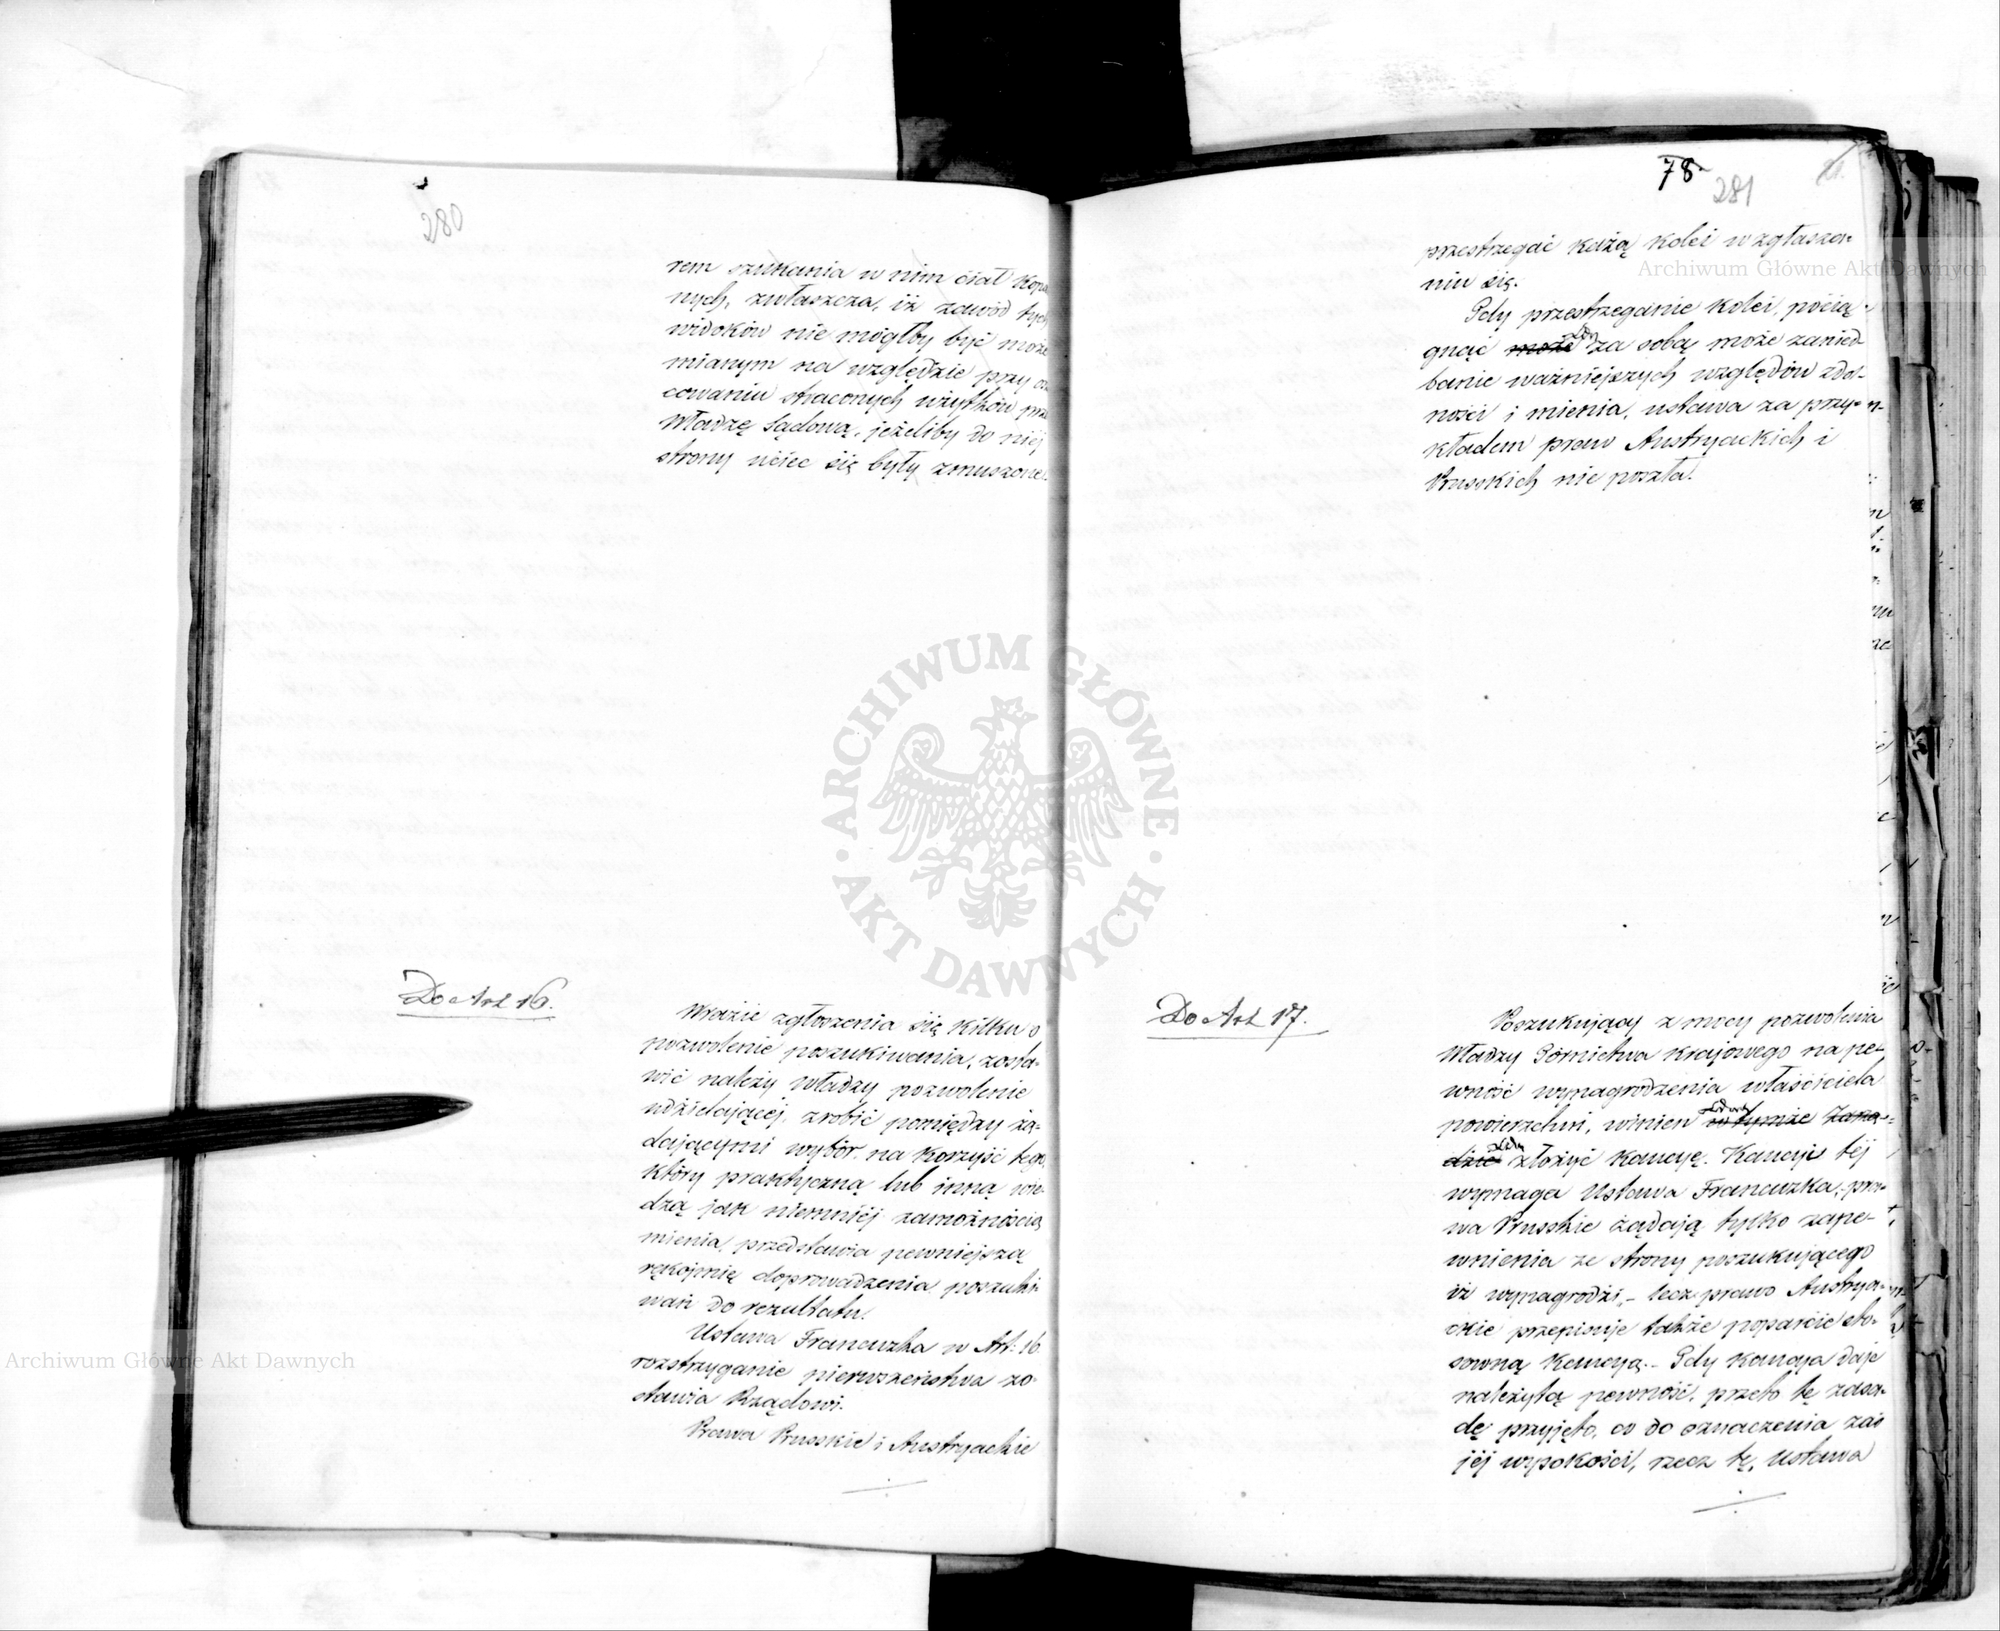 280
rem szukania w nim ciał kopal
nych, zwłaszcza, iż zawód tych
widoków nie mógłby być może
mianym na względzie przy
cowaniu straconych użytków prze
Władzę Sądową, jeżeliby do niéj
strony uciec się były zmuszone.
Do Art 16.
W razie zgłoszenia się kilku o
pozwolenie poszukiwania, zosta-
wić należy władzy pozwolenie
udzielającéj, zrobić pomiędzy żą-
dającymi wybór, na korzyść tego,
który praktyczną lub inną wie-
dzą jak niemniéj zamożnością
mienia, przedstawia pewniejszą
rękojmię doprowadzenia poszuki-
wań do rezultatu.
Ustawa Francuzka w Art: 16
rozstrzyganie pierwszeństwa zo-
stawia Rządowi.
Prawa Prusskie i Austryackie
78
281
przestrzegać każą kolei w zgłasza-
niu się.
Gdy przestrzeganie kolei, pocią-
gnąć może za sobą może zanied-
banie ważniejszych względów zdol-
ności i mienia, ustawa za przy-
kładem praw Austryackich i
Prusskich nie poszła.
Do Art 17.
Poszukujący z mocy pozwolenia
Władzy Górnictwa krajowego na pe-
wność wynagrodzenia właściciela
powierzchni, winien w tymże Zarzą-
dzie złożyć kaucyę. Kaucyi téj
wymaga Ustawa Francuzka, pra-
wa Prusskie żądają tylko zape-
wnienia ze strony poszukującego
iż wynagrodzi, – lecz prawo Austrya-
ckie przepisuje także poparcie sto-
sowną kaucyą. – Gdy kaucya daje
należytą pewność, przeto tę zasa-
dę przyjęto, co do oznaczenia zaś
jéj wysokości, rzecz tę, Ustawa
Archiwum Główne Akt Dawnych
Archiwum Główne Akt Dawnych
ARCHIWUM GŁÓWNE AKT DAWNYCH